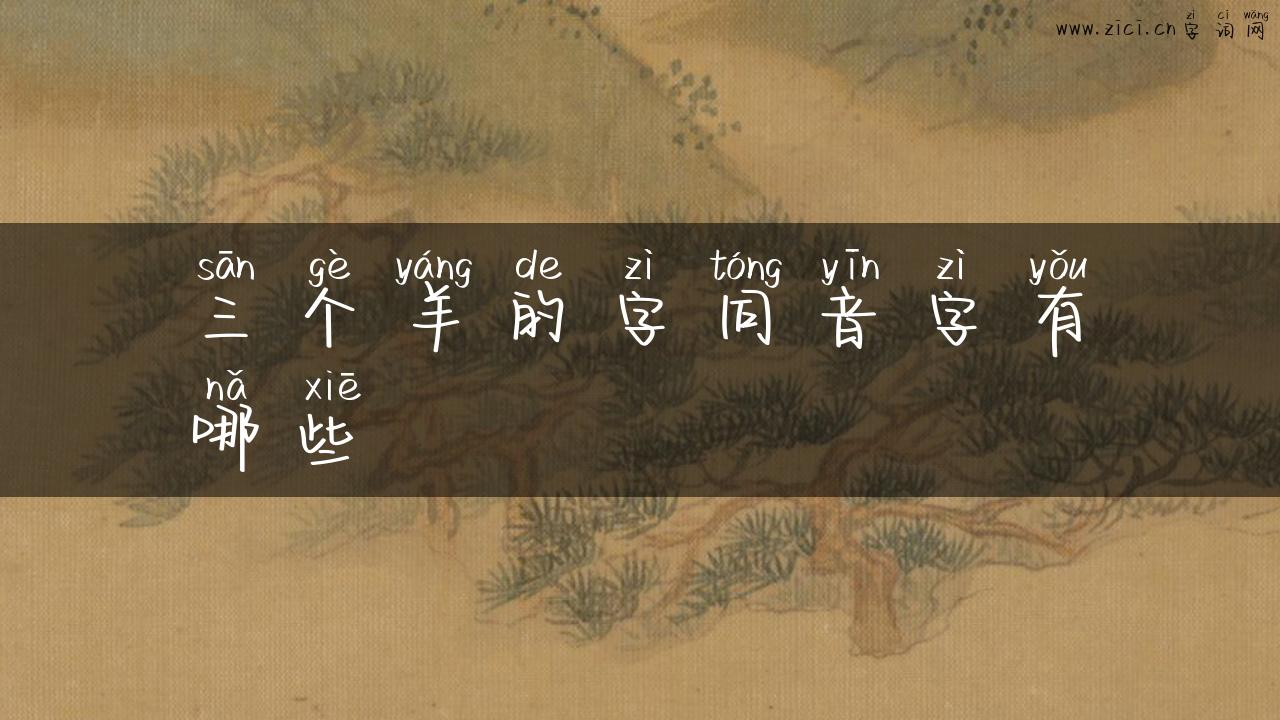 zì cí wǎng
www.zici.cn 字词网
sān gè yáng de zì tóng yīn zì yǒu
三个羊的字同音字有
nǎ xiē
哪些